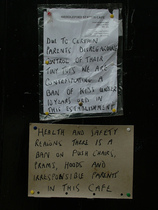 DUE TO CERTAIN
PARENTS DISREGARDING
CONTROL OF THEIR
WE ARE
CONTEMPLATING A
BAN OF KIDS UNDER
IN
THIS ESTABLISHMENT
HEALTH AND SAFETY
REASONS THERE IS A
BAN ON PUSH CHAIRS,
PRAMS, HOODS AND
IRRESPONSIBLE PARENTS
IN THIS CAFE